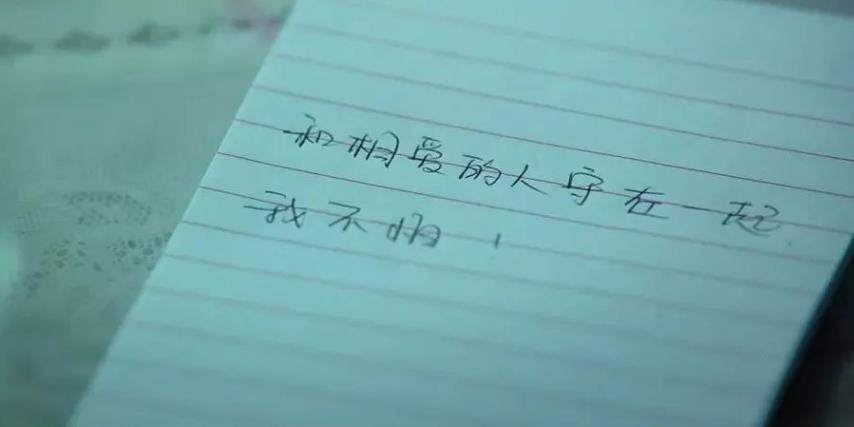 和相爱的人守在一起
我不怕！